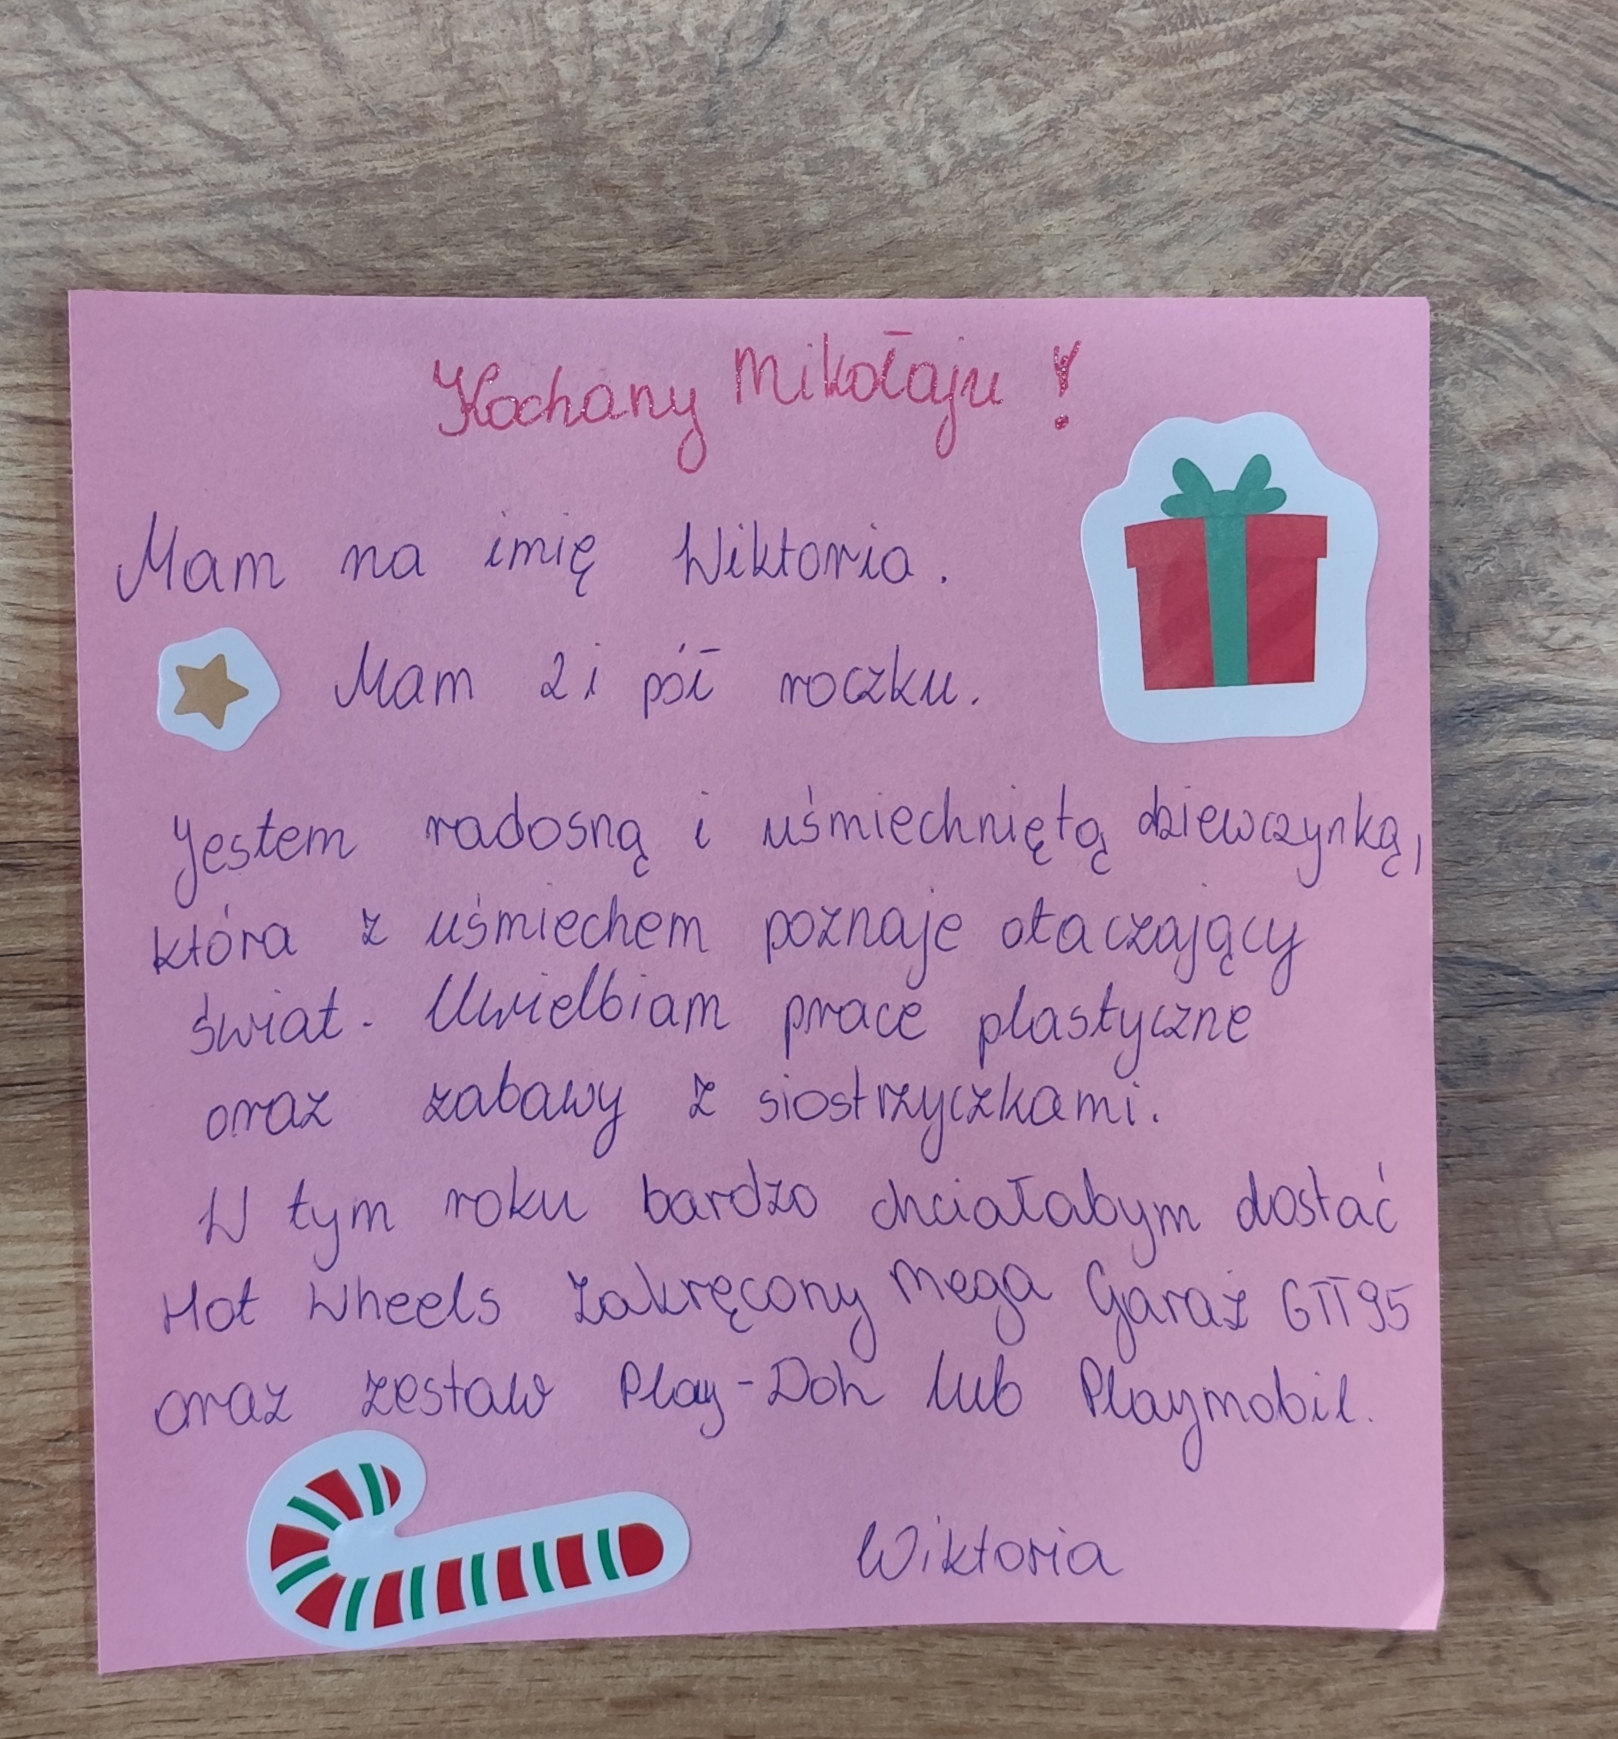 Kochany Mikołaju !
Mam na imię Wiktoria.
Mam 2 i pół roczku.
Jestem radosną i uśmiechniętą dziewczynką,
która z uśmiechem poznaje otaczający
świat. Uwielbiam prace plastyczne
oraz zabawy z siostrzyczkami.
W tym roku bardzo chciałabym dostać
Hot Wheels Zakręcony Mega Garaż GTT95
oraz zestaw Play-Doh lub Playmobil.
Wiktoria